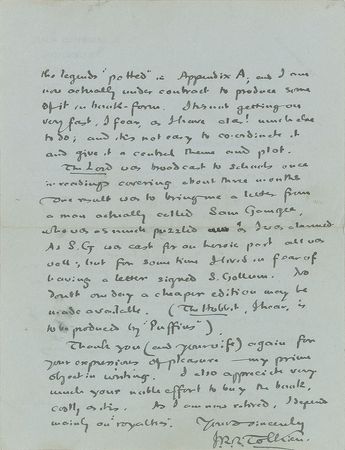 the legends "potted" in Appendix A; and I am
now actually under contract to produce some
of it in book-form. It is not getting on
very fast, I fear, as I have alas! much else
to do; and it's not easy to co-ordinate it
and give it a central theme and plot.
The Lord was broadcast to schools once
in readings covering about three months
One result was to bring me a letter from
a man actually called Sam Gamgee,
who was as much puzzled as I was alarmed.
As S.G was cast for an heroic part all was
well; but for some time I lived in fear of
having a letter signed S. Gollum. No
doubt one day a cheaper edition may be
made available. (The Hobbit, I hear, is
to be produced by "Puffins").
Thank you (and your wife) again for
your expressions of pleasure — my prime
object in writing. I also appreciate very
much your noble effort to buy the book,
costly as it is. As I am now retired, I depend
mainly on 'royalties'.
Yours sincerely
J.R.R. Tolkien.